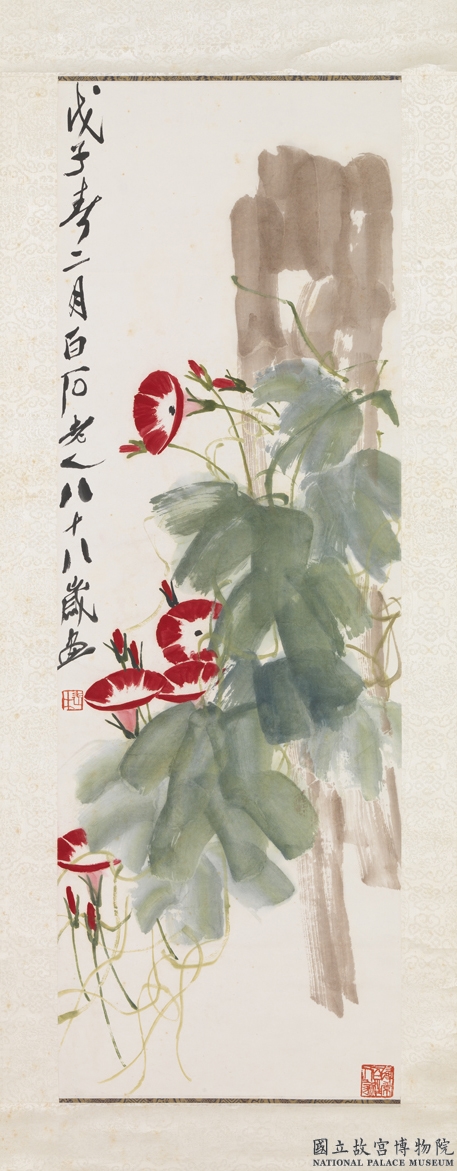 戊子春二月白石老人八十八歲畫
國立故宮博物院
NATIONAL PALACE MUSEUM